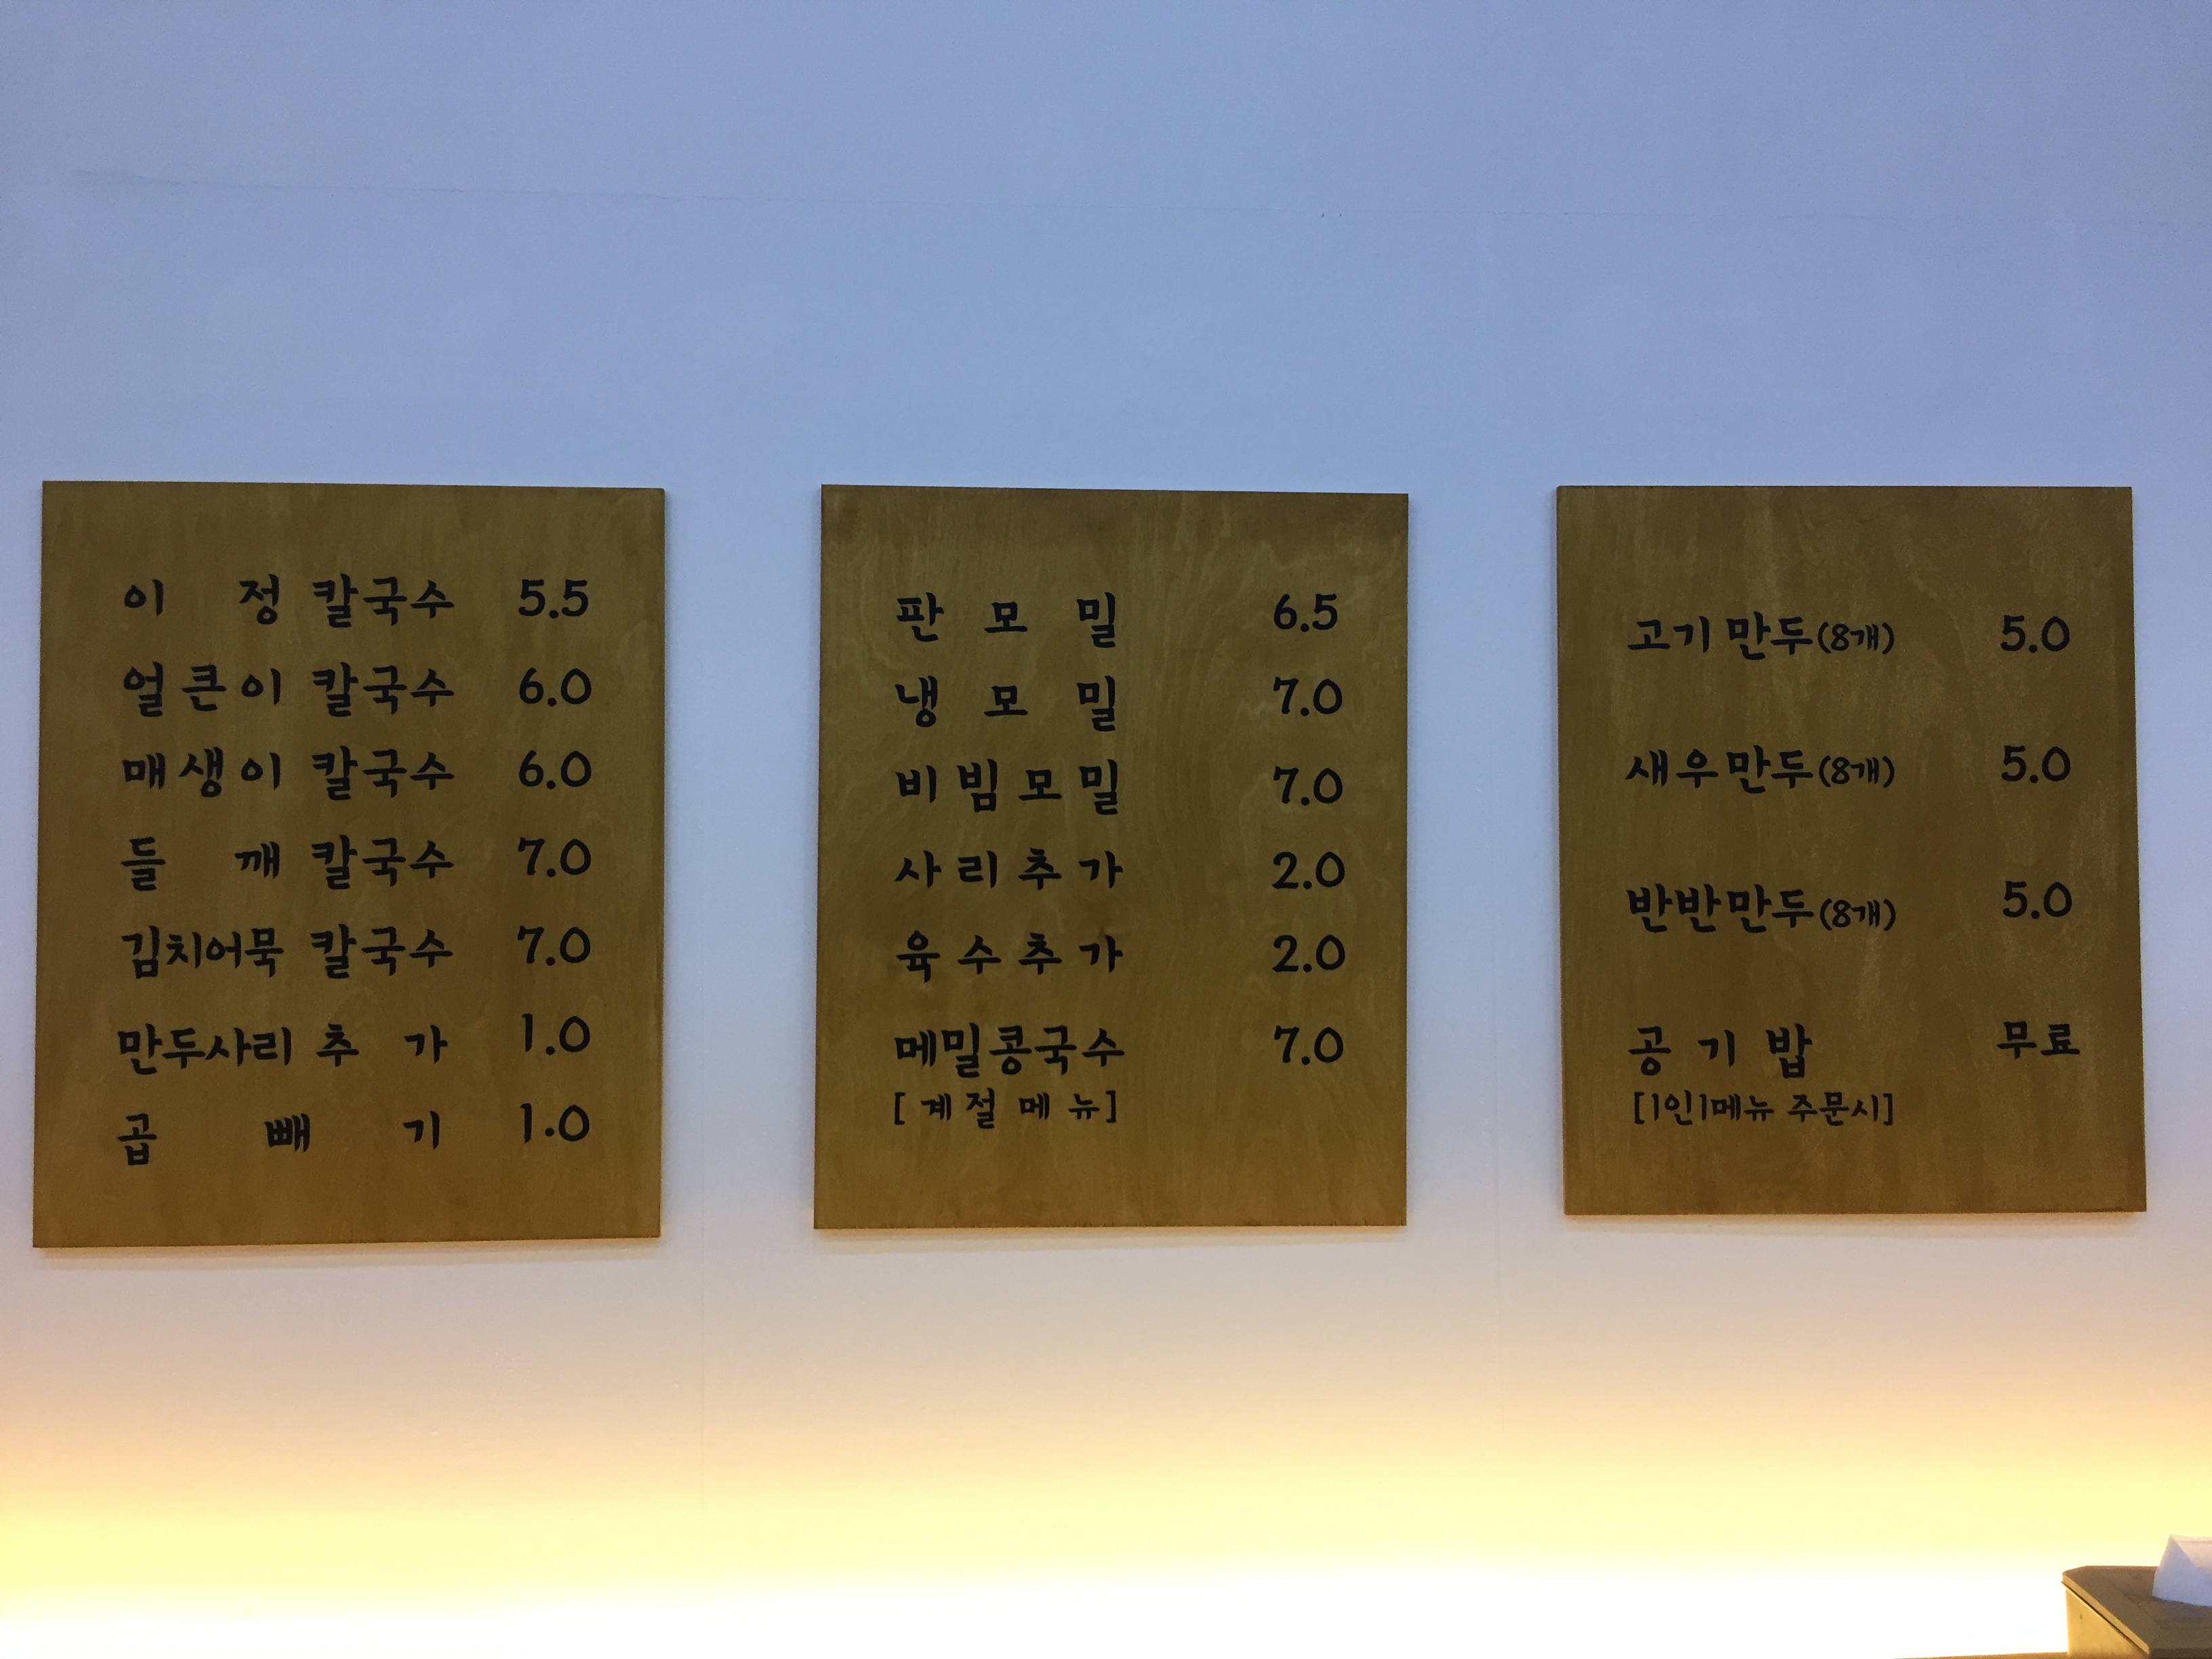 이정 칼국수 5.5
얼큰이 칼국수 6.0
매생이 칼국수 6.0
들깨 칼국수 7.0
김치어묵 칼국수 7.0
만두사리 추가 1.0
곱빼기 1.0
판모밀 6.5
냉모밀 7.0
비빔모밀 7.0
사리추가 2.0
육수추가 2.0
메밀콩국수 7.0
[계절메뉴]
고기만두(8개) 5.0
새우만두(8개) 5.0
반반만두(8개) 5.0
공기밥 무료
[1인1메뉴 주문시]